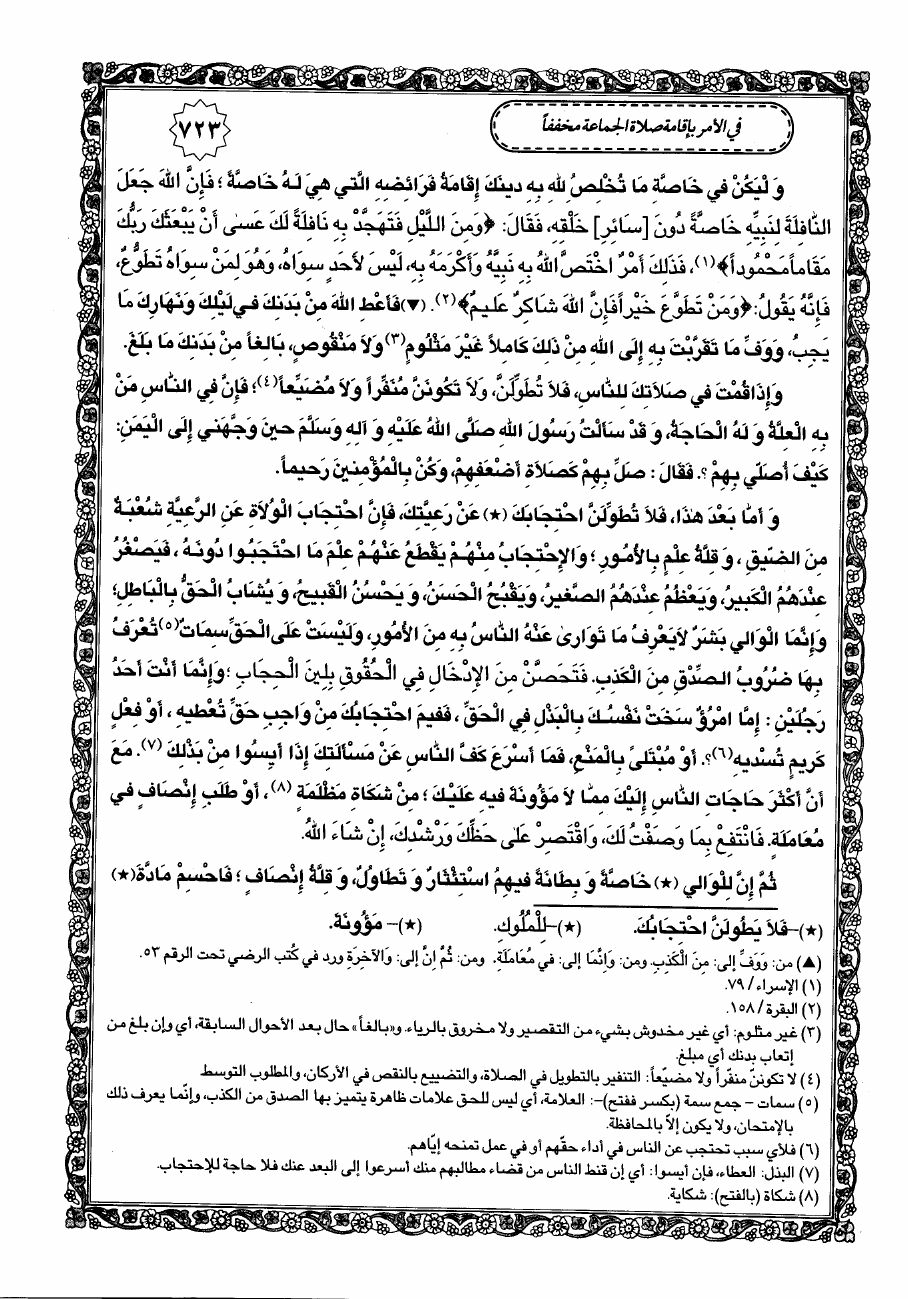 في الأمر بإقامة صلاة الجماعة مخففاً
٧٢٣
وَ لْيَكُنْ في خَاصَّةِ مَا تُخْلِصُ لِلّهِ بِهِ دينَكَ إِقَامَةُ فَرَائِضِهِ الَّتي هِيَ لَـهُ خَاصَّةً ؛ فَإِنَّ اللّهَ جَعَلَ
النَّافِلَةَ لِنَبِيِّهِ خَاصَّةً دُونَ [سَائِرِ] خَلْقِهِ، فَقَالَ: ﴿وَمِنَ اللَّيْلِ فَتَهَجَّدْ بِهِ نَافِلَةً لَكَ عَسىٰ أَنْ يَبْعَثَكَ رَبُّكَ
مَقَاماً مَحْمُوداً﴾(١)، فَذَلِكَ أَمْرٌ اخْتَصَّ اللّهُ بِهِ نَبِيَّهُ وَأَكْرَمَهُ بِهِ، لَيْسَ لأَحَدٍ سِوَاهُ، وَهُوَ لِمَنْ سِوَاهُ تَطَوُّعٌ،
فَإِنَّهُ يَقُولُ: ﴿وَمَنْ تَطَوَّعَ خَيْراً فَإِنَّ اللّهَ شَاكِرٌ عَليمٌ﴾(٢). (▼) فَأَعْطِ اللّهَ مِنْ بَدَنِكَ في لَيْلِكَ وَنَهَارِكَ مَا
يَجِبُ، وَوَفِّ مَا تَقَرَّبْتَ بِهِ إِلَى اللّهِ مِنْ ذَلِكَ كَامِلاً غَيْرَ مَثْلُومٍ(٣) وَلاَ مَنْقُوصٍ، بَالِغاً مِنْ بَدَنِكَ مَا بَلَغَ.
وَإِذَا قُمْتَ في صَلاَتِكَ لِلنَّاسِ، فَلاَ تُطَوِّلَنَّ، وَلاَ تَكُونَنَّ مُنَفِّراً وَلاَ مُضَيِّعاً(٤)؛ فَإِنَّ فِي النَّاسِ مَنْ
بِهِ الْعِلَّةُ وَ لَهُ الْحَاجَةُ، وَ قَدْ سَأَلْتُ رَسُولَ اللّهِ صَلَّى اللّهُ عَلَيْهِ وَ آلِهِ وَسَلَّمَ حينَ وَجَّهَني إِلَى الْيَمَنِ:
كَيْفَ أُصَلّي بِهِمْ ؟. فَقَالَ : صَلِّ بِهِمْ كَصَلاَةِ أَضْعَفِهِمْ، وَكُنْ بِالْمُؤْمِنينَ رَحيماً.
وَ أَمَّا بَعْدَ هذَا، فَلاَ تُطَوِّلَنَّ احْتِجَابَكَ (★) عَنْ رَعِيَّتِكَ، فَإِنَّ احْتِجَابَ الْوُلاَةِ عَنِ الرَّعِيَّةِ شُعْبَةٌ
مِنَ الضّيقِ ، وَ قِلَّةُ عِلْمٍ بِالأُمُورِ ؛ وَالاِحْتِجَابُ مِنْهُمْ يَقْطَعُ عَنْهُمْ عِلْمَ مَا احْتَجَبُوا دُونَهُ ، فَيَصْغُرُ
عِنْدَهُمُ الْكَبيرُ، وَيَعْظُمُ عِنْدَهُمُ الصَّغيرُ، وَيَقْبُحُ الْحَسَنُ، وَ يَحْسُنُ الْقَبيحُ، وَ يُشَابُ الْحَقُّ بِالْبَاطِلِ؛
وَ إِنَّمَا الْوَالي بَشَرٌ لاَ يَعْرِفُ مَا تَوَارىٰ عَنْهُ النَّاسُ بِهِ مِنَ الأُمُورِ، وَلَيْسَتْ عَلَى الْحَقِّ سِمَاتٌ(٥) تُعْرَفُ
بِهَا ضُرُوبُ الصِّدْقِ مِنَ الْكَذِبِ. فَتَحَصَّنْ مِنَ الإِدْخَالِ فِي الْحُقُوقِ بِلينِ الْحِجَابِ ؛ وَإِنَّمَا أَنْتَ أَحَدُ
رَجُلَيْنِ : إِمَّا امْرُؤٌ سَخَتْ نَفْسُكَ بِالْبَذْلِ فِي الْحَقِّ ، فَفيمَ احْتِجَابُكَ مِنْ وَاجِبِ حَقٍّ تُعْطيهِ ، أَوْ فِعْلٍ
كَريمٍ تُسْديهِ(٦)؟. أَوْ مُبْتَلىً بِالْمَنْعِ، فَمَا أَسْرَعَ كَفَّ النَّاسِ عَنْ مَسْأَلَتِكَ إِذَا أَيِسُوا مِنْ بَذْلِكَ (٧). مَعَ
أَنَّ أَكْثَرَ حَاجَاتِ النَّاسِ إِلَيْكَ مِمَّا لاَ مَؤُونَةَ فيهِ عَلَيْكَ ؛ مِنْ شَكَاةِ مَظْلَمَةٍ (٨)، أَوْ طَلَبِ إِنْصَافٍ في
مُعَامَلَةٍ. فَانْتَفِعْ بِمَا وَصَفْتُ لَكَ، وَاقْتَصِرْ عَلىٰ حَظِّكَ وَرُشْدِكَ، إِنْ شَاءَ اللّهُ.
ثُمَّ إِنَّ لِلْوَالي (★) خَاصَّةً وَ بِطَانَةً فيهِمُ اسْتِئْثَارٌ وَ تَطَاوُلٌ، وَ قِلَّةُ إِنْصَافٍ ؛ فَاحْسِمْ مَادَّةَ(★)
(★)–فَلاَ يَطُولَنَّ احْتِجَابُكَ. (★)–لِلْمُلُوكِ. (★)– مَؤُونَةَ.
(▲) من: وَوَفِّ إلى: مِنَ الْكَذِبِ. ومن: وَإِنَّمَا إلى: في مُعَامَلَةٍ. ومن: ثُمَّ إِنَّ إلى: وَالآخِرَةِ ورد في كُتب الرضي تحت الرقم ٥٣.
(١) الإسراء / ٧٩.
(٢) البقرة / ١٥٨.
(٣) غير مثلوم: أي غير مخدوش بشيء من التقصير ولا مخروق بالرياء. و«بالغاً» حال بعد الأحوال السابقة، أي وإن بلغ من
إتعاب بدنك أي مبلغ.
(٤) لا تكوننّ منفّراً ولا مضيّعاً: التنفير بالتطويل في الصلاة، والتضييع بالنقص في الأركان، والمطلوب التوسط
(٥) سمات – جمع سمة (بكسر ففتح)–: العلامة، أي ليس للحق علامات ظاهرة يتميز بها الصدق من الكذب، وإنّما يعرف ذلك
بالإمتحان، ولا يكون إلاّ بالمحافظة.
(٦) فلأي سبب تحتجب عن الناس في أداء حقّهم أو في عمل تمنحه إيّاهم.
(٧) البذل: العطاء، فإن أيسوا: أي إن قنط الناس من قضاء مطالبهم منك أسرعوا إلى البعد عنك فلا حاجة للإحتجاب.
(٨) شكاة (بالفتح): شكاية.